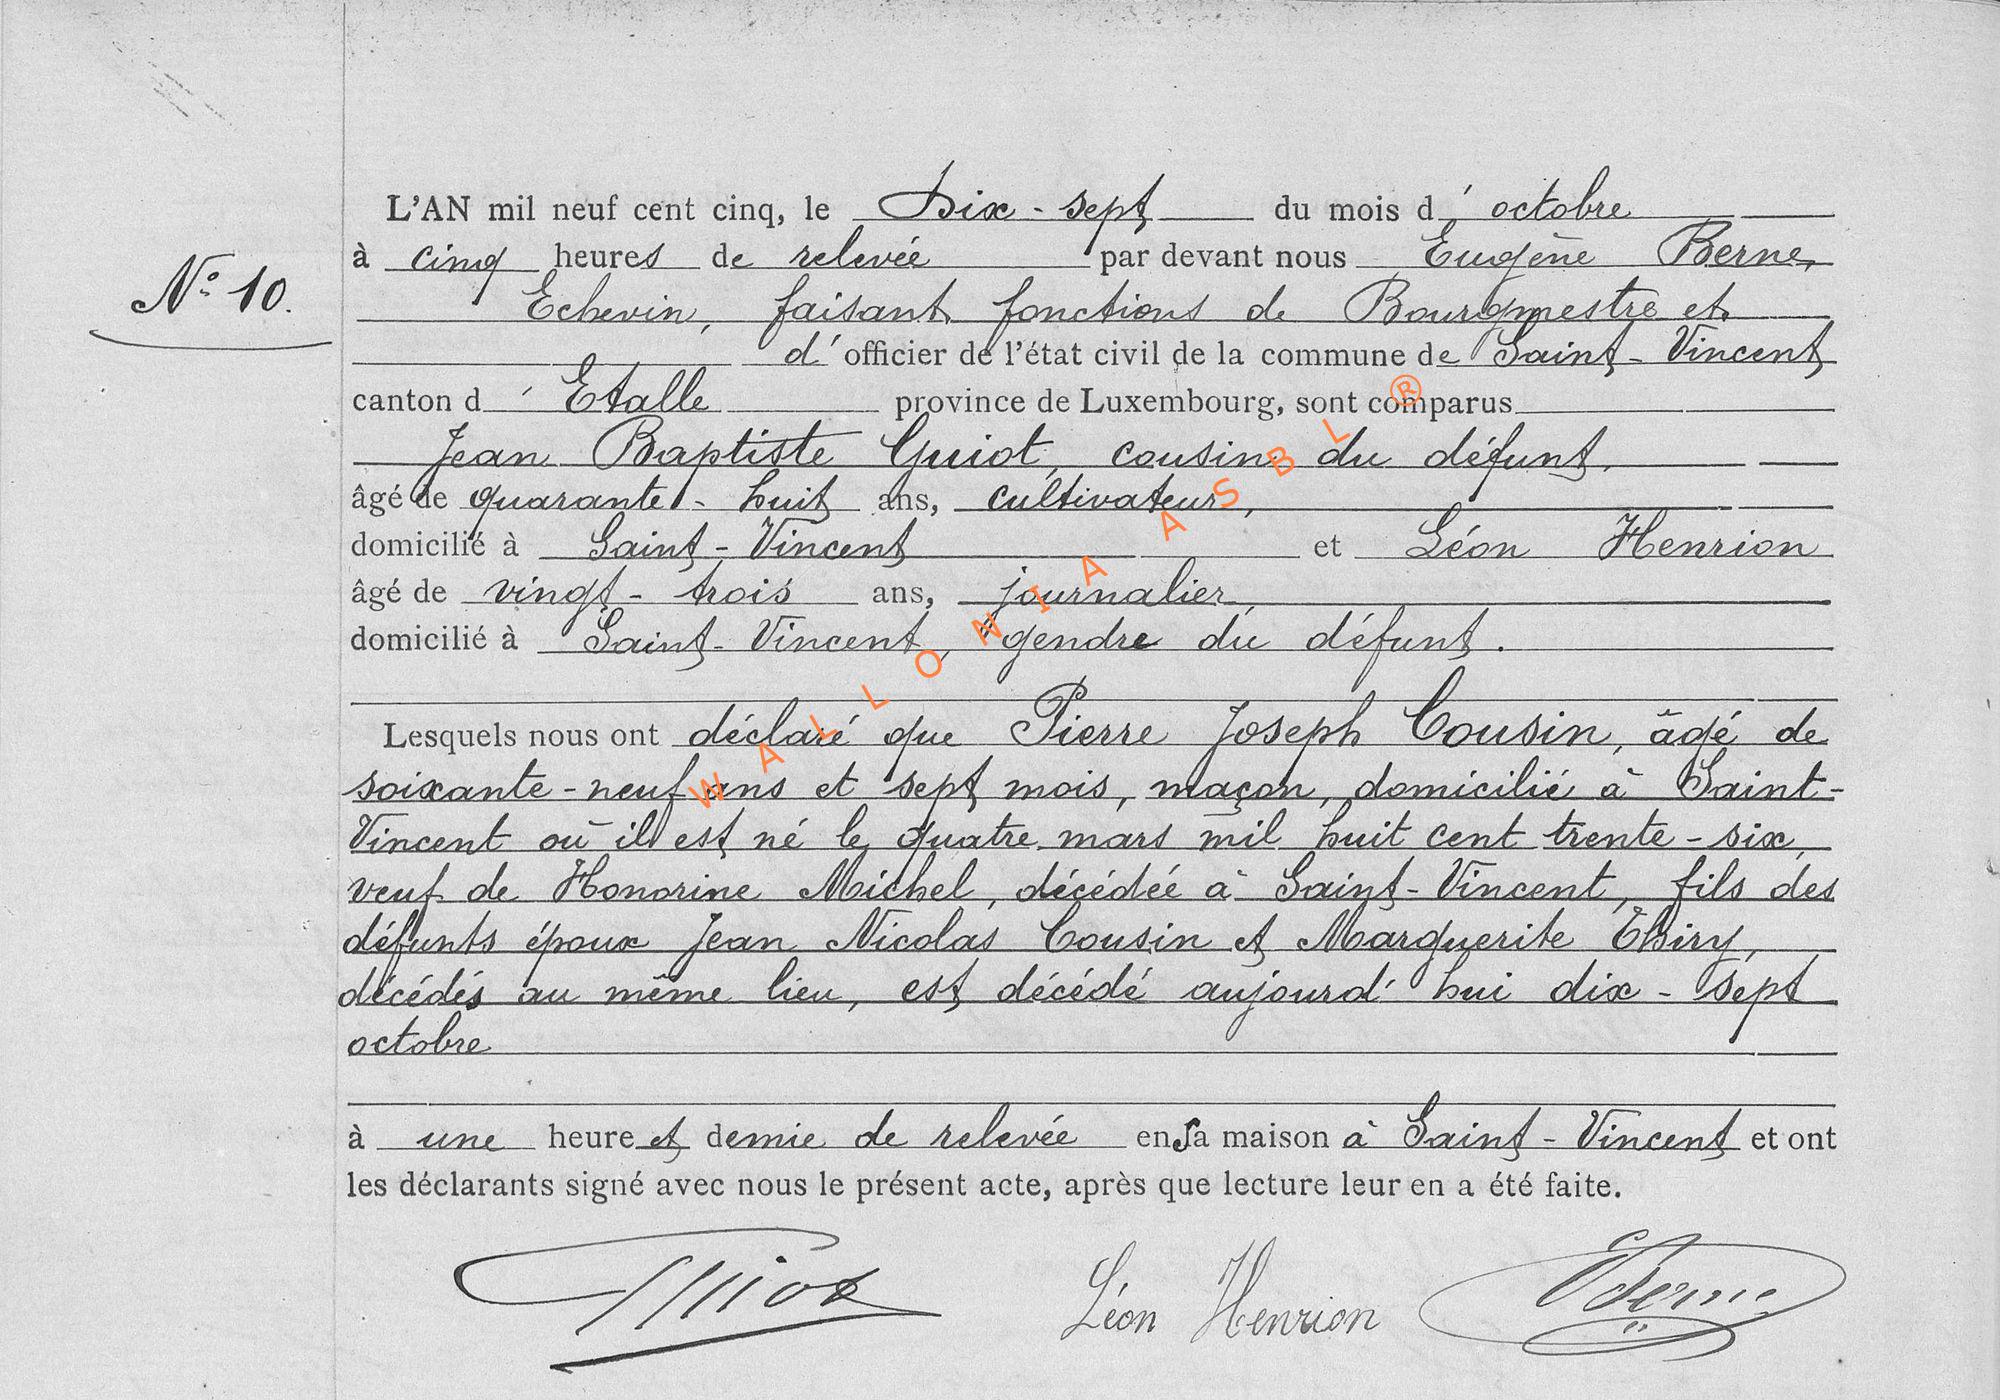 L'AN mil neuf cent cinq, le Dix-sept du mois d'octobre
N° 10.
à cinq heures de relevée par devant nous Eugène Berne,
Echevin, faisant fonctions de Bourgmestre et
d'officier de l'état civil de la commune de Saint-Vincent
canton d'Etalle province de Luxembourg, sont comparus
Jean Baptiste Guiot, cousin du défunt,
âgé de quarante-huit ans, cultivateur,
domicilié à Saint-Vincent et Léon Henrion
âgé de vingt-trois ans, journalier,
domicilié à Saint-Vincent, gendre du défunt.
Lesquels nous ont déclaré que Pierre Joseph Cousin, âgé de
soixante-neuf ans et sept mois, maçon, domicilié à Saint-
Vincent où il est né le quatre mars mil huit cent trente-six,
veuf de Honorine Michel, décédée à Saint-Vincent, fils des
défunts époux Jean Nicolas Cousin et Marguerite Thiry,
décédés au même lieu, est décédé aujourd'hui dix-sept
octobre
à une heure et demie de relevée en sa maison à Saint-Vincent et ont
les déclarants signé avec nous le présent acte, après que lecture leur en a été faite.
Guiot Léon Henrion EBerne
WALLONIA ASBL ®